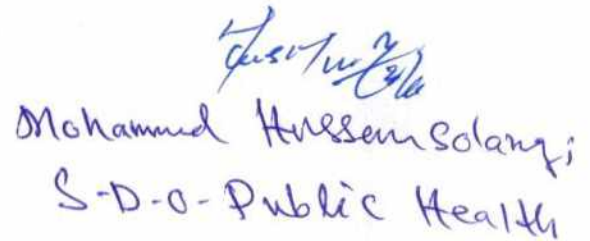 Mohammed Hussein Solangi
S-D-O- Public Health